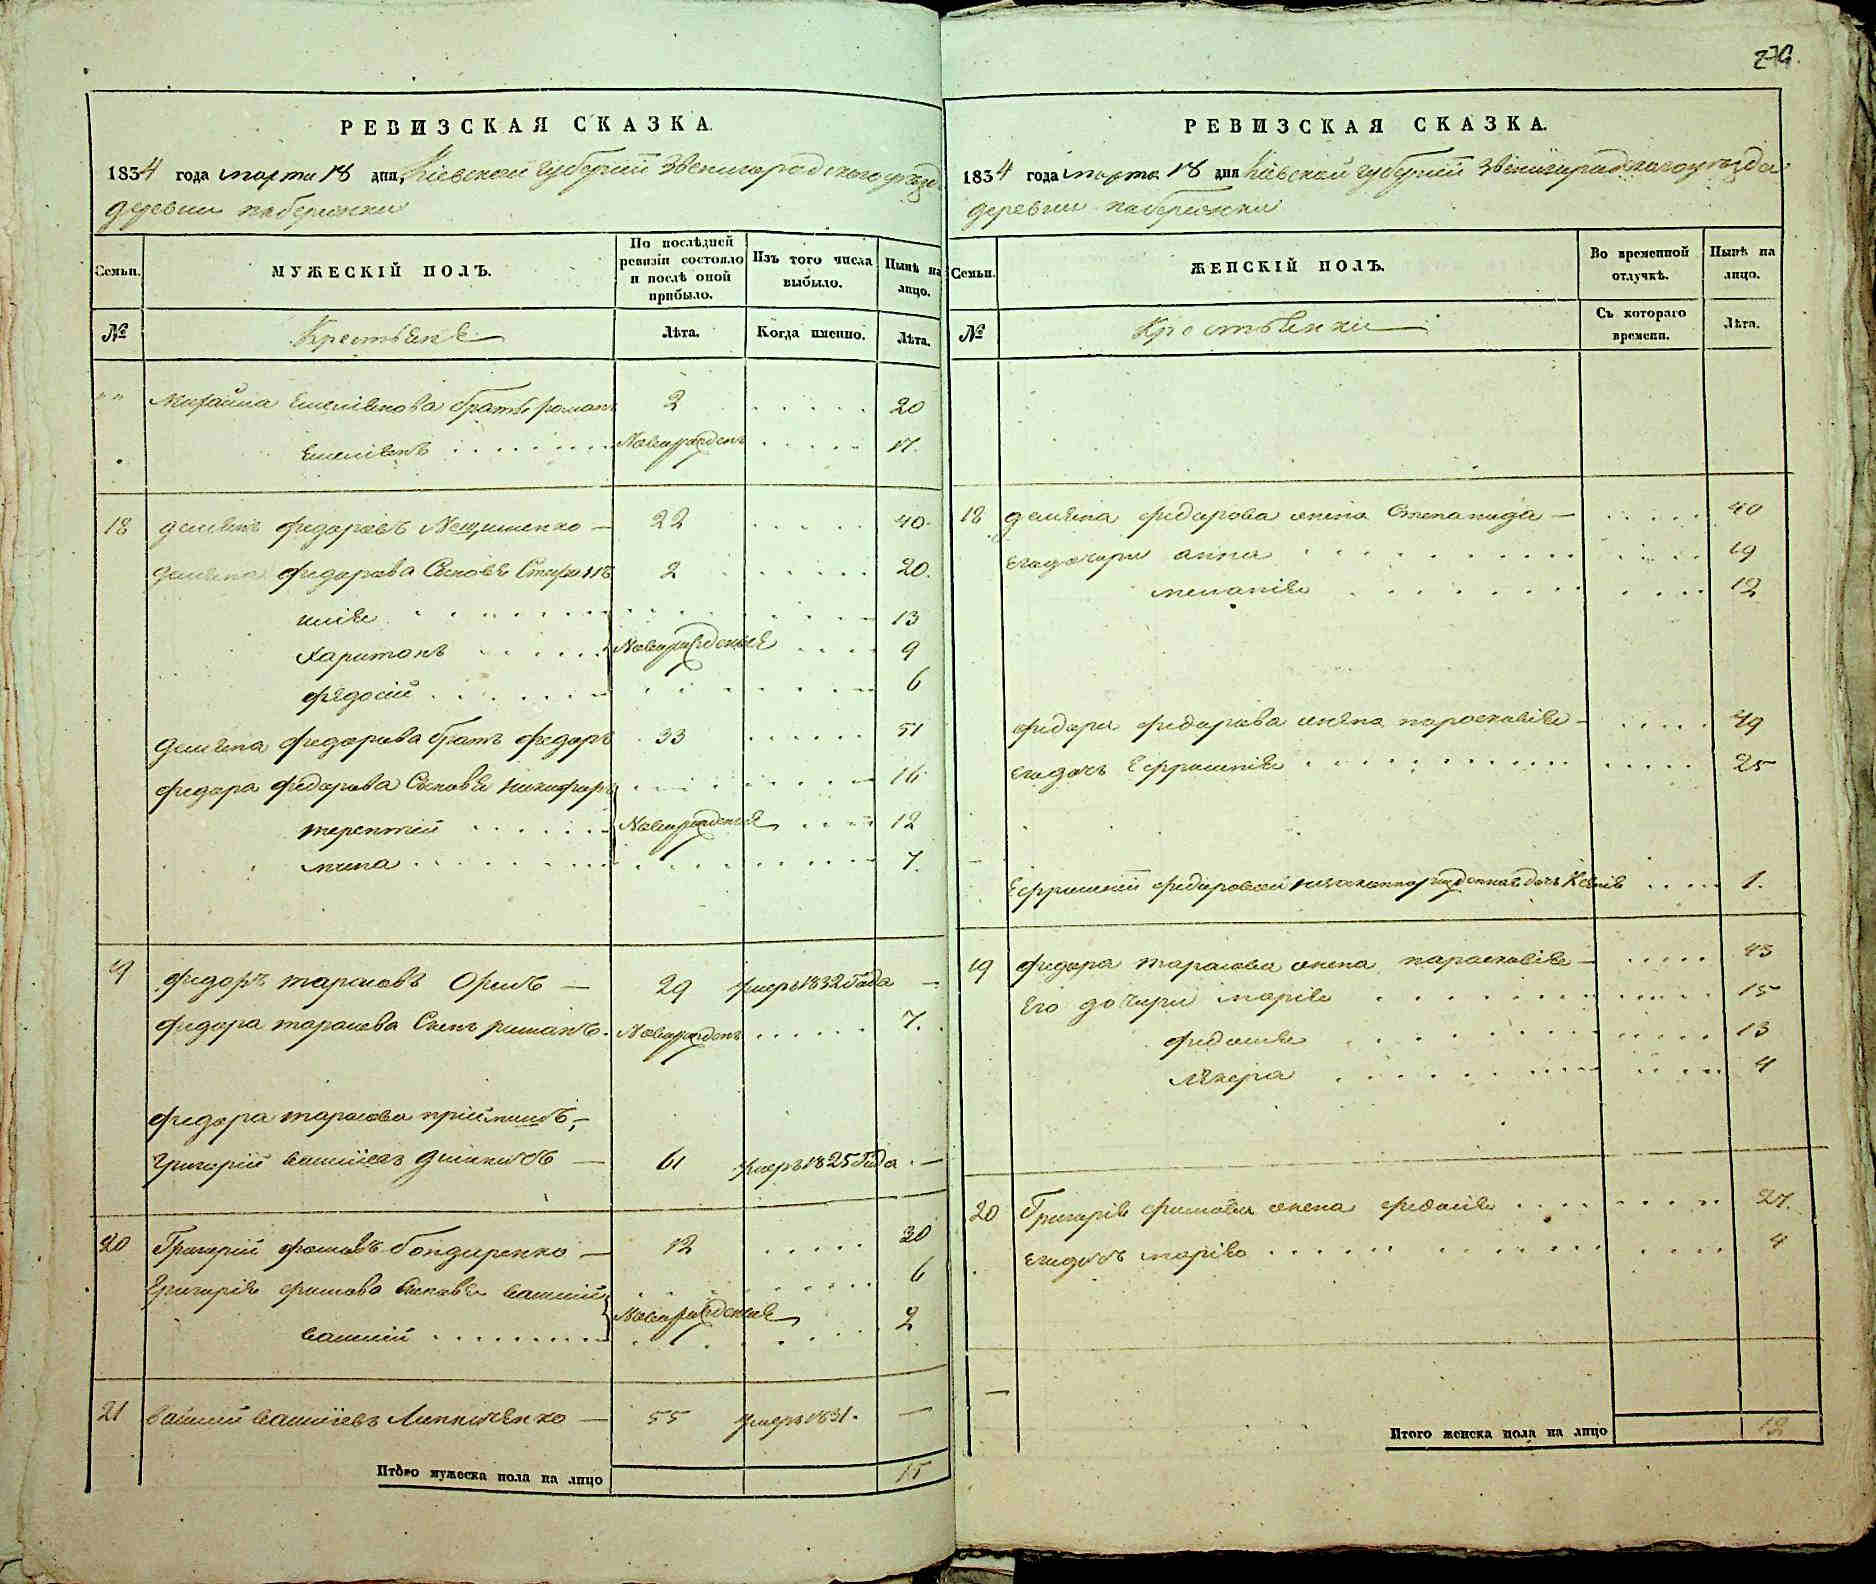 274.
РЕВИЗСКАЯ СКАЗКА.
1834 года марта 18 дня, Кіевской губерніи Звенигородского уезда
деревни
Семьи.
МУЖЕСКІЙ ПОЛЪ.
По послѣдней ревизіи состояло и послѣ оной прибыло.
Изъ того числа выбыло.
Нынѣ на лицо.
№
Крестьяне
Лѣта.
Когда именно.
Лѣта.
Михайла Емелянова братъ романъ 2 20
Емелянъ Новорожденъ 17.
18 демянъ федоровъ 22 40.
демяна федорова Сыновья 2 20.
илія 13
Харитонъ Новорожденные 9
федосій 6
демяна федорова братъ федоръ 33 51
федора федорова Сыновья никифоръ 16
терентій Новорожденные 12
7.
19 федоръ тарасовъ 29 умеръ 1832 года —
федора тарасова Сынъ романъ Новорожденъ 7.
федора тарасова пріймакъ,
григорій 61 умеръ 1825 года —
20 Григорій фомовъ бондаренко — 12 30
Григорія фомова Сыновья василій 6
василій Новорожденные 2
21 василій 55 умеръ 1831. —
Итого мужеска пола на лицо 15
РЕВИЗСКАЯ СКАЗКА.
1834 года марта 18 дня Кіевской губерніи Звенигородскаго уезда
деревни
Семьи.
ЖЕНСКІЙ ПОЛЪ.
Во временной отлучкѣ.
Нынѣ на лицо.
№
Крестьянки
Съ котораго времени.
Лѣта.
18 демяна федорова жена Степанида — 40
его дочери анна 19
меланія 12
федора федорова жена параскавія 49
его дочь Ефросинія 25
Ефросиніи федоровой незаконнорожденная дочь 1.
19 федора тарасова жена параскавія — 43
Его дочери марія 15
федосія 13
4
20 Григорія фомова жена федосія 27.
его дочь марія 4
Итого женска пола на лицо 12